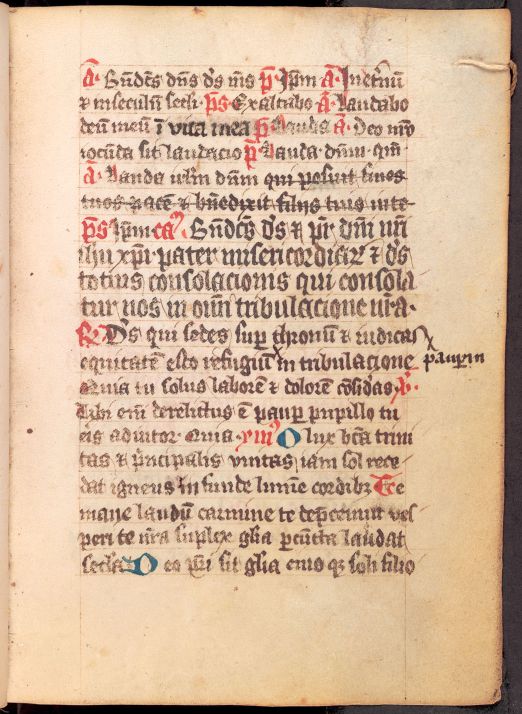 A. Bn̄dc̄s dn̄s ds̄ ms̄ ps̄ Ipm̄ A. In et̓nū
⁊ in seculū secli. ps̄ Exaltabo A. Laudabo
deū meū ī vita mea ps̄ Lauda A. Deo nr̄o
iocūda sit laudacio ps̄ Lauda dn̄m qm̄
A. Lauda ihr̄lm dn̄m qui posuit fines
tuos pacē ⁊ bn̄edixit filijs tuis in te
ps̄ Ipm̄ Ca. Bn̄dc̄s ds̄ ⁊ pr̄ dn̄i nr̄i
ihu xp̄i pater misericordiaꝝ ⁊ ds̄
totius consolacionis qui consola
tur nos in om̄i tribulacione nr̄a.
R. Ds̄ qui sedes sup̄ thronū ⁊ iudicas
equitatē esto refugiū in tribulacione
pauꝑum
Quia tu solus laborē ⁊ dolorē cōsid̓as V.
Tibi em̄ derelictus ē paup̄ pupillo tu
eis adiutor. Quia. ymꝰ O lux bt̄a trini
tas ⁊ p̓ncipalis vnitas iam sol rece
dat igneus infunde lumē cordibꝫ Te
mane laudū carmine te dep̄cemur ves
peri te nr̄a suplex gl̄ia ꝑ cūcta laudat
secl̄a Deo pr̄i sit gl̄ia eius qꝫ soli filio